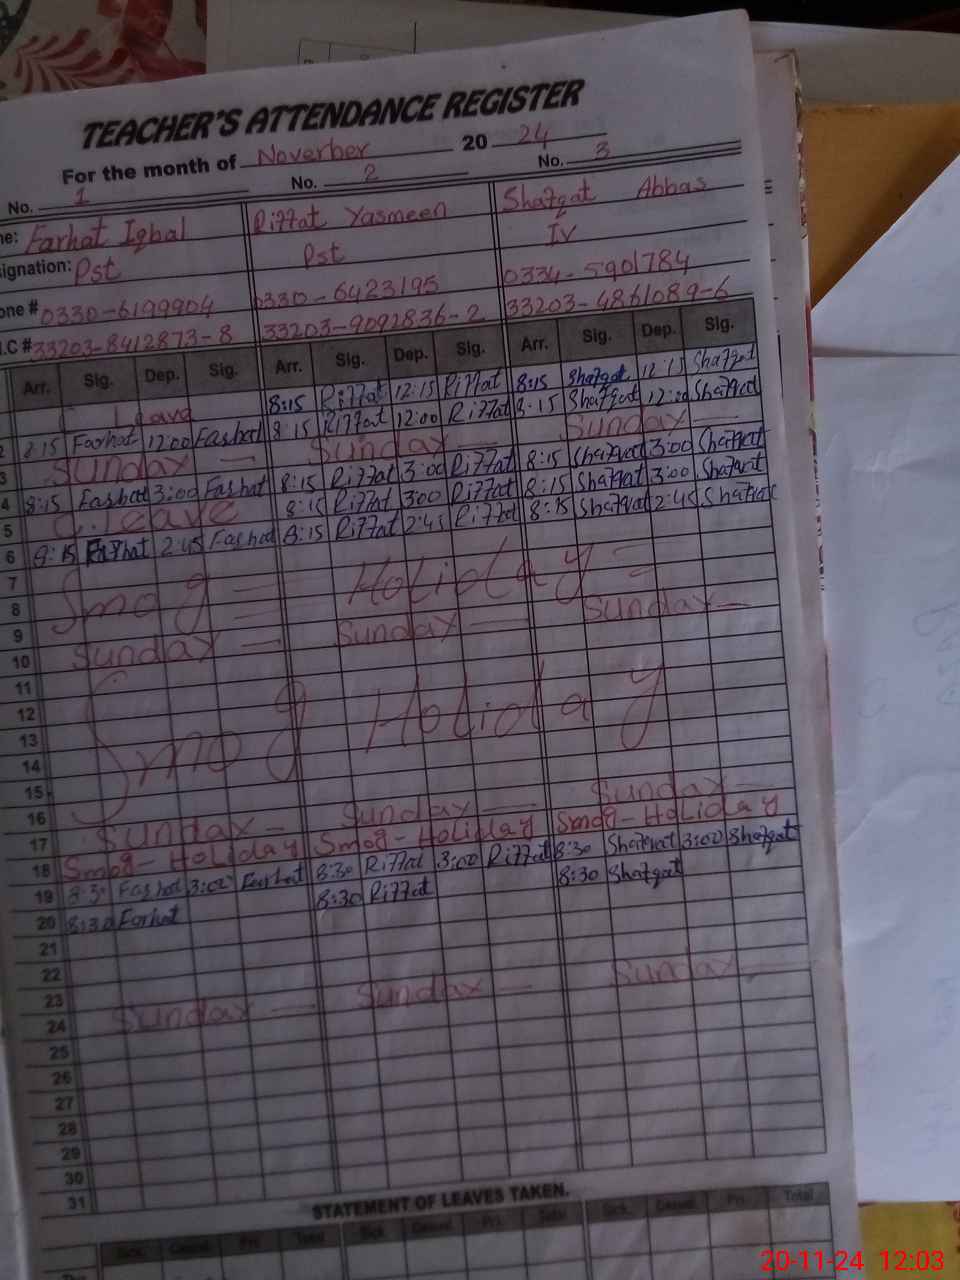 TEACHER'S ATTENDANCE REGISTER
For the month of November 20 24
No. 1 No. 2 No. 3
ne: Farhat Iqbal Riffat Yasmeen Shafqat Abbas
signation: Pst Pst IV
one # 0330-6199904 0330-6423195 0334-5901784
.C # 33203-8412873-8 33203-9092836-2 33203-4861089-6
Arr. Sig. Dep. Sig. Arr. Sig. Dep. Sig. Arr. Sig. Dep. Sig.
Leave 8:15 Riffat 12:15 Riffat 8:15 Shafqat 12:15 Shafqat
2 8:15 Farhat 12:00 Farhat 8:15 Riffat 12:00 Riffat 8:15 Shafqat 12:00 Shafqat
3 Sunday Sunday Sunday
4 8:15 Farhat 3:00 Farhat 8:15 Riffat 3:00 Riffat 8:15 Shafqat 3:00 Shafqat
5 C.leave 8:15 Riffat 3:00 Riffat 8:15 Shafqat 3:00 Shafqat
6 8:15 Farhat 2:45 Farhat 8:15 Riffat 2:45 Riffat 8:15 Shafqat 2:45 Shafqat
7
8 Smog Holiday
9
10 Sunday Sunday Sunday
11
12
13 Smog Holiday
14
15
16
17 Sunday Sunday Sunday
18 Smog-Holiday Smog-Holiday Smog-Holiday
19 8:30 Farhat 3:00 Farhat 8:30 Riffat 3:00 Riffat 8:30 Shafqat 3:00 Shafqat
20 8:30 Farhat 8:30 Riffat 8:30 Shafqat
21
22
23
24 Sunday Sunday Sunday
25
26
27
28
29
30
31
STATEMENT OF LEAVES TAKEN.
Sick. Casual Pri. Total Sick Casual Pri. Total Sick. Casual Pri. Total
20-11-24 12:03